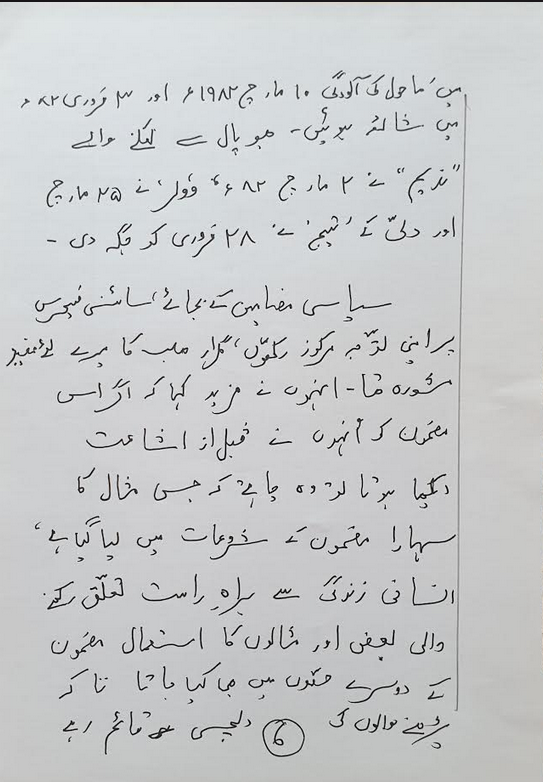 میں، ماحول کی آلودگی ۱۰ مارچ ۱۹۸۲ء اور ۳ فروری ۸۲ء
میں شائع ہوئیں۔ بھوپال سے نکلنے والے
"ندیم" نے ۲ مارچ ۸۲ء، نے ۲۵ مارچ
اور دلّی کے 'تیج' نے ۲۸ فروری کو جگہ دی۔
سیاسی مضامین کے بجائے، سائنسی فیچرس
پر اپنی توجّہ مرکوز رکھوں، گلزار صاحب کا میرے لئے مفید
مشورہ تھا۔ انہوں نے مزید کہا کہ اگر اس
مضمون کو اُنہوں نے قبل از اشاعت
دیکھا ہوتا تو وہ چاہتے کہ جس مثال کا
سہارا مضمون کے شروعات میں لیا گیا ہے،
انسانی زندگی سے براہِ راست تعلّق رکھنے
والی بعض اور مثالوں کا استعمال مضمون
کے دوسرے حصّوں میں بھی کیا جاتا تاکہ
پڑھنے والوں کی دلچسپی قائم رہے